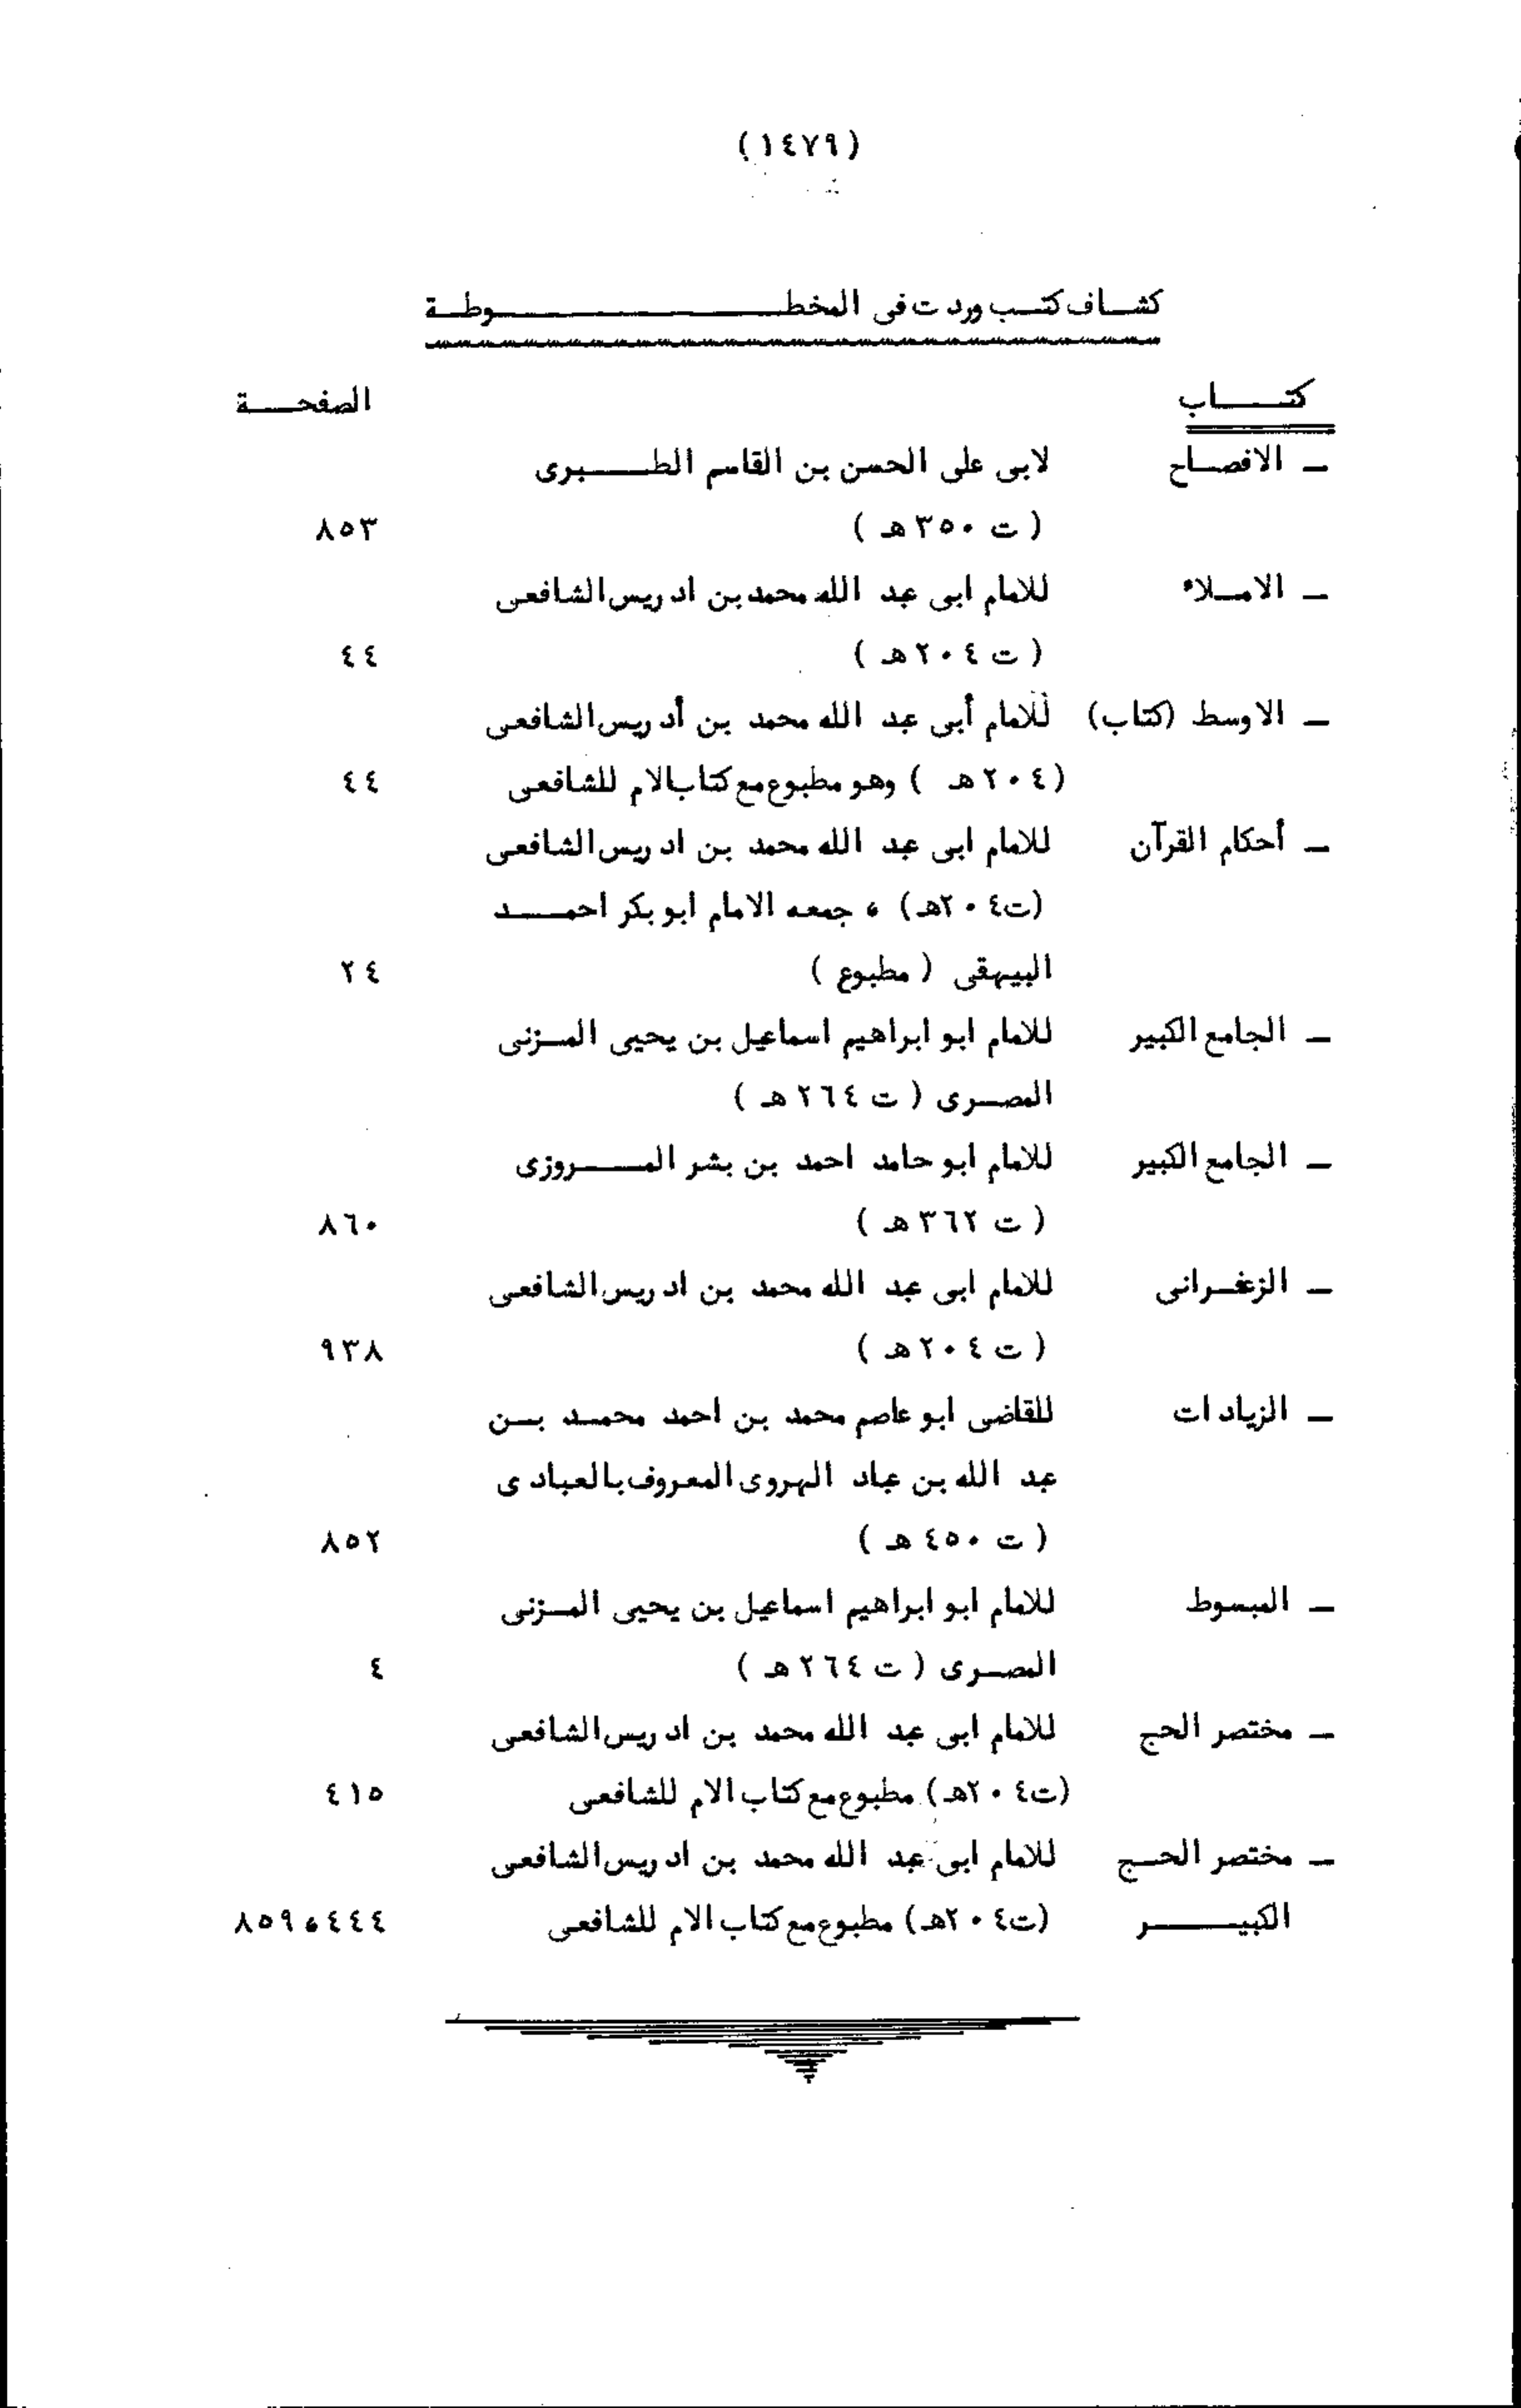 (١٤٧٩)
كشاف كتب وردت فى المخطوطة
كتاب الصفحة
ـ الافصاح لابى على الحسن بن القاسم الطبرى
( ت ٣٥٠ هـ ) ٨٥٣
ـ الاملاء للامام ابى عبد الله محمد بن ادريس الشافعى
( ت ٢٠٤ هـ ) ٤٤
ـ الاوسط (كتاب) للامام أبى عبد الله محمد بن أدريس الشافعى
( ٢٠٤ هـ ) وهو مطبوع مع كتاب الام للشافعى ٤٤
ـ أحكام القرآن للامام ابى عبد الله محمد بن ادريس الشافعى
(ت ٢٠٤هـ) ، جمعه الامام ابو بكر احمد
البيهقى ( مطبوع ) ٢٤
ـ الجامع الكبير للامام ابو ابراهيم اسماعيل بن يحيى المزنى
المصرى ( ت ٢٦٤ هـ )
ـ الجامع الكبير للامام ابو حامد احمد بن بشر المروزى
( ت ٣٦٢ هـ ) ٨٦٠
ـ الزعفرانى للامام ابى عبد الله محمد بن ادريس الشافعى
( ت ٢٠٤ هـ ) ٩٣٨
ـ الزيادات للقاضى ابو عاصم محمد بن احمد محمد بن
عبد الله بن عباد الهروى المعروف بالعبادى
( ت ٤٥٠ هـ ) ٨٥٢
ـ المبسوط للامام ابو ابراهيم اسماعيل بن يحيى المزنى
المصرى ( ت ٢٦٤ هـ ) ٤
ـ مختصر الحج للامام ابى عبد الله محمد بن ادريس الشافعى
(ت ٢٠٤هـ) مطبوع مع كتاب الام للشافعى ٤١٥
ـ مختصر الحج للامام ابى عبد الله محمد بن ادريس الشافعى
الكبير (ت ٢٠٤هـ) مطبوع مع كتاب الام للشافعى ٤٤٤ ، ٨٥٩